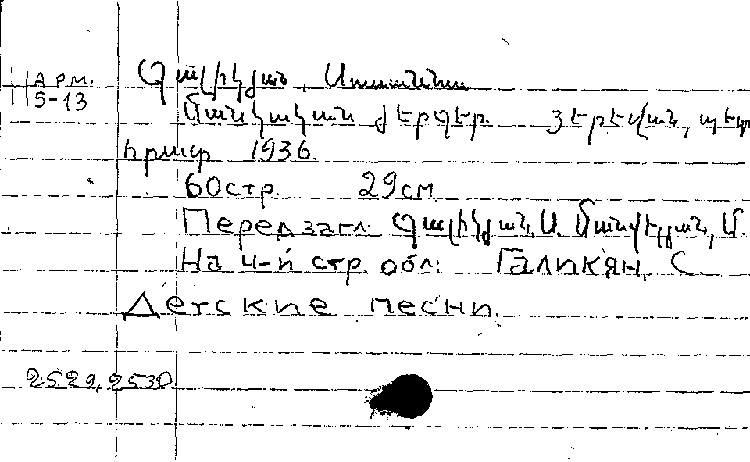 АРМ.
5-13
Գալիկյան, Ստանա
Մանկական յերգեր. Յերեվան, պետ
հրատ 1936
60 стр. 29 см.
Перед загл: Գալիկյան, Ս. Մանվելյան, Մ.
На 4-й стр. обл: Галикян, С
Детские песни.
2529, 2530